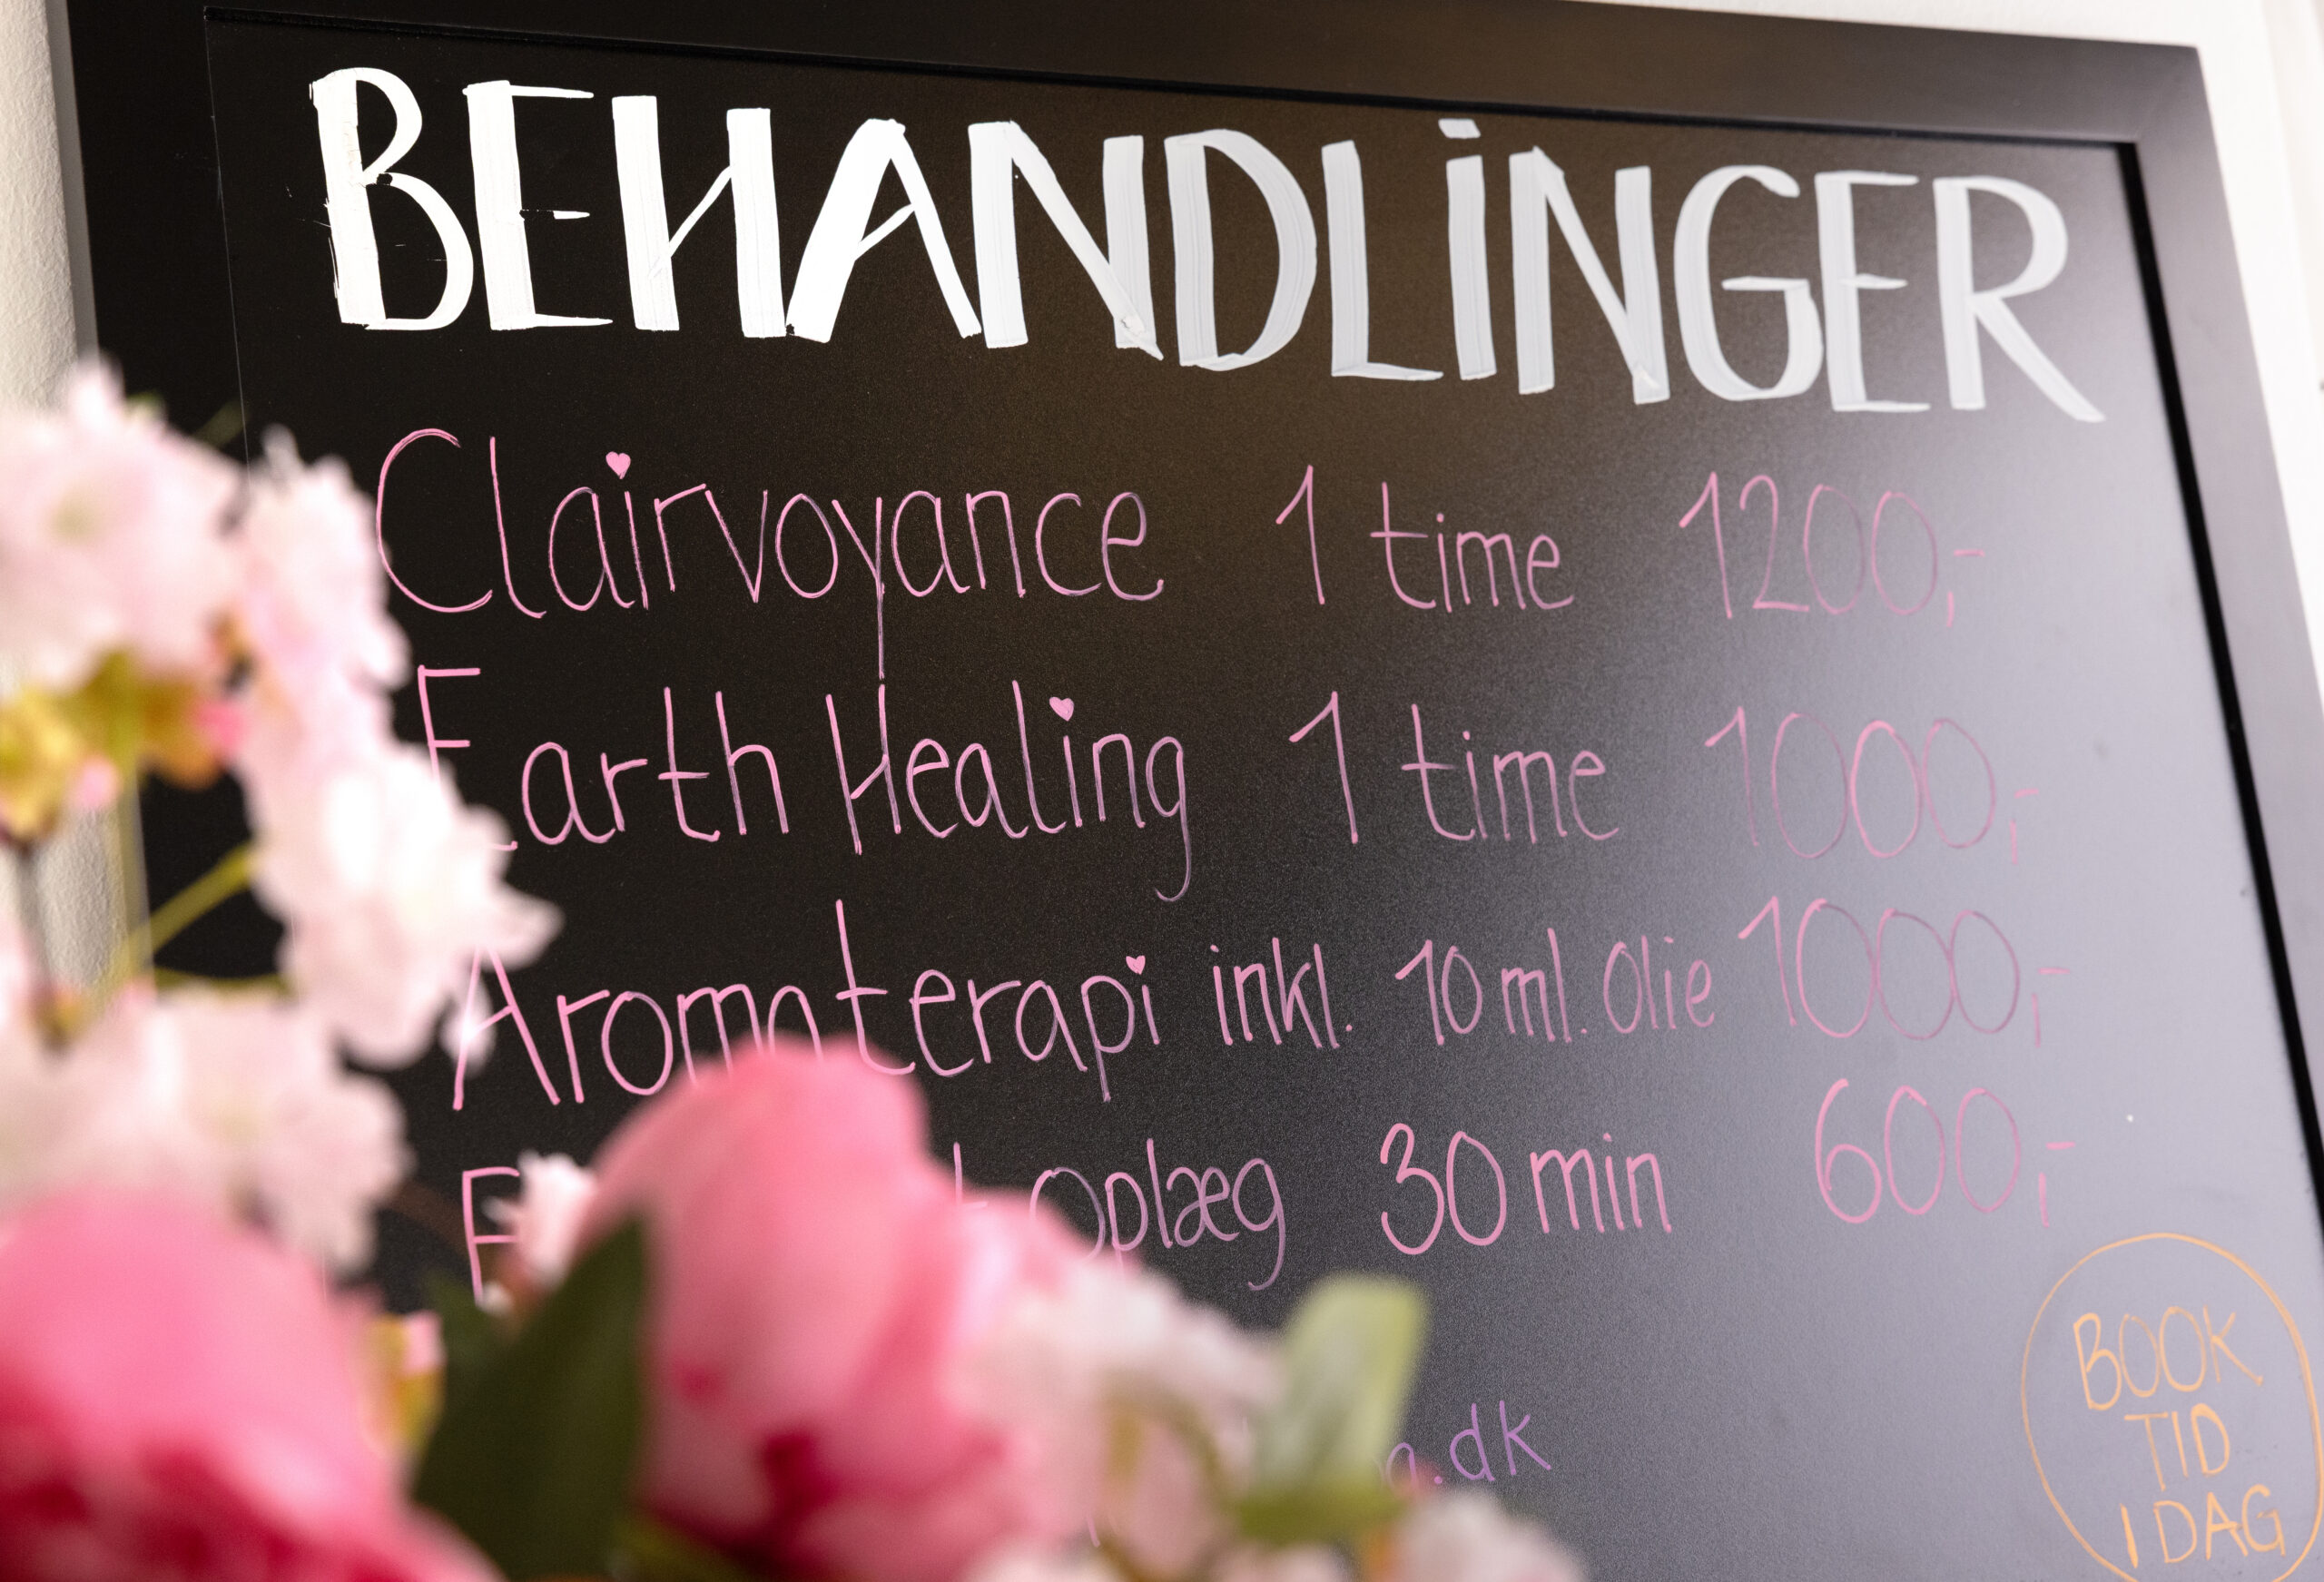 BEHANDLINGER
Clairvoyance 1 time 1200,-
Earth Healing 1 time 1000,-
Aromaterapi inkl. 10 ml. Olie 1000,-
Oplæg 30 min 600,-
.dk
BOOK
TID
I DAG